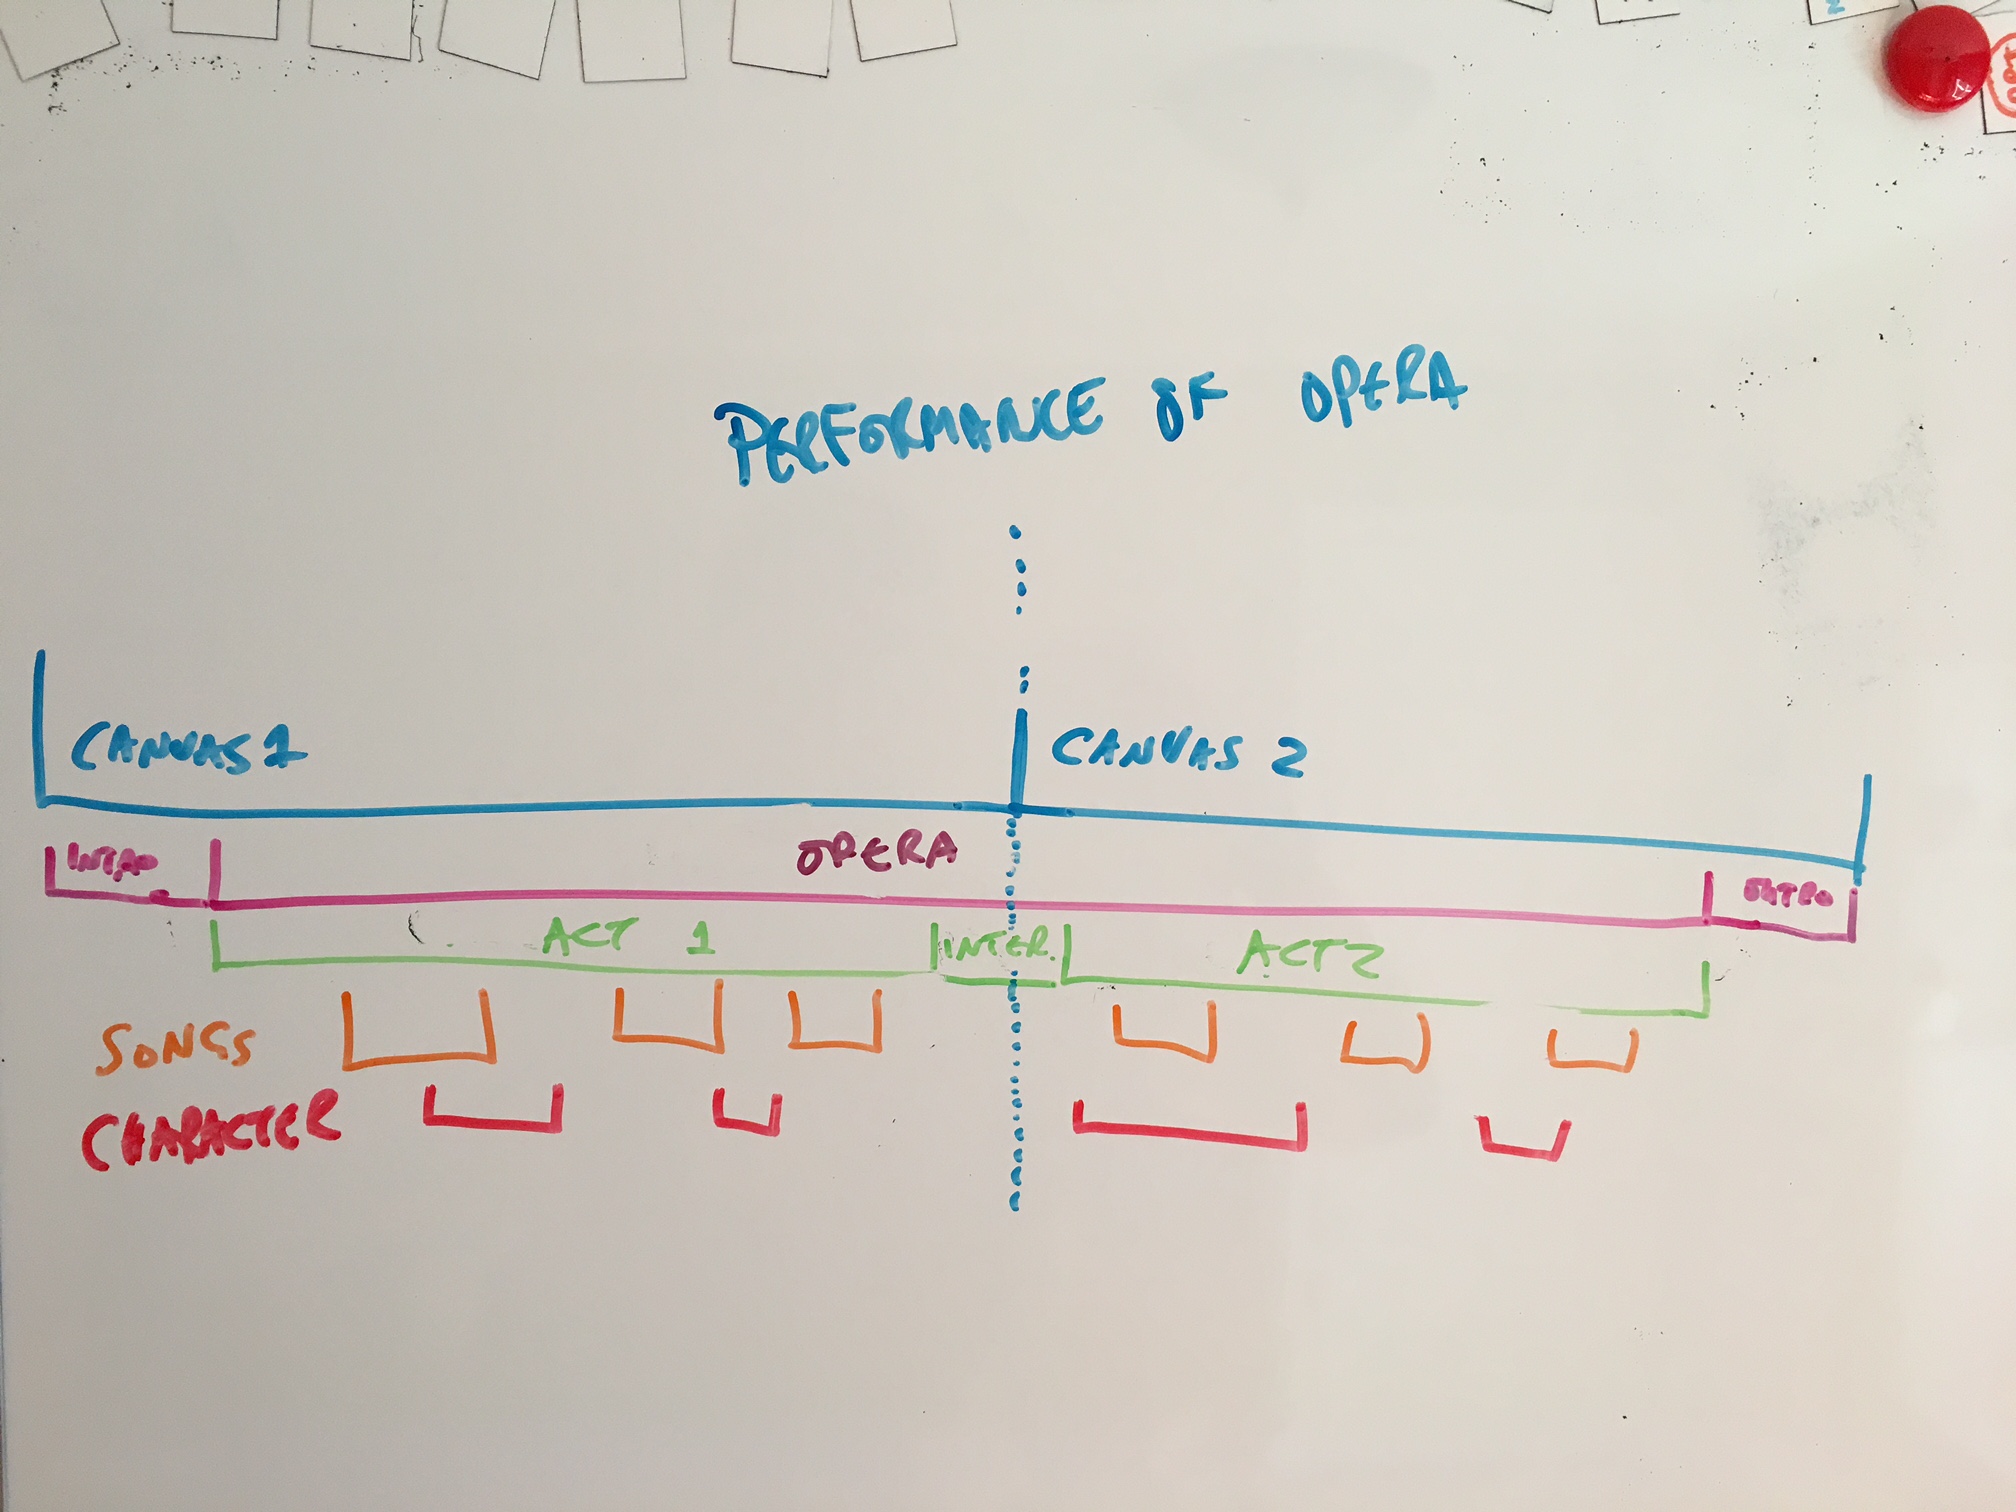 PERFORMANCE OF OPERA
CANVAS 1 CANVAS 2
INTRO OPERA OUTRO
ACT 1 INTER. ACT 2
SONGS
CHARACTER